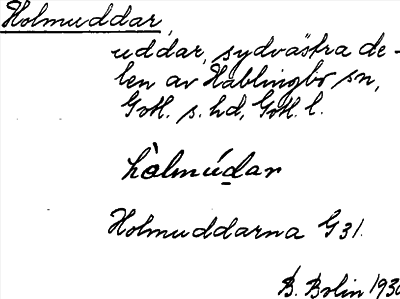 Holmuddar,
uddar, sydvästra de-
len av Hablingbo sn,
Gotl. s. hd, Gotl. l.
hòlmúdar
Holmuddarna G31.
B. Bolin 1930